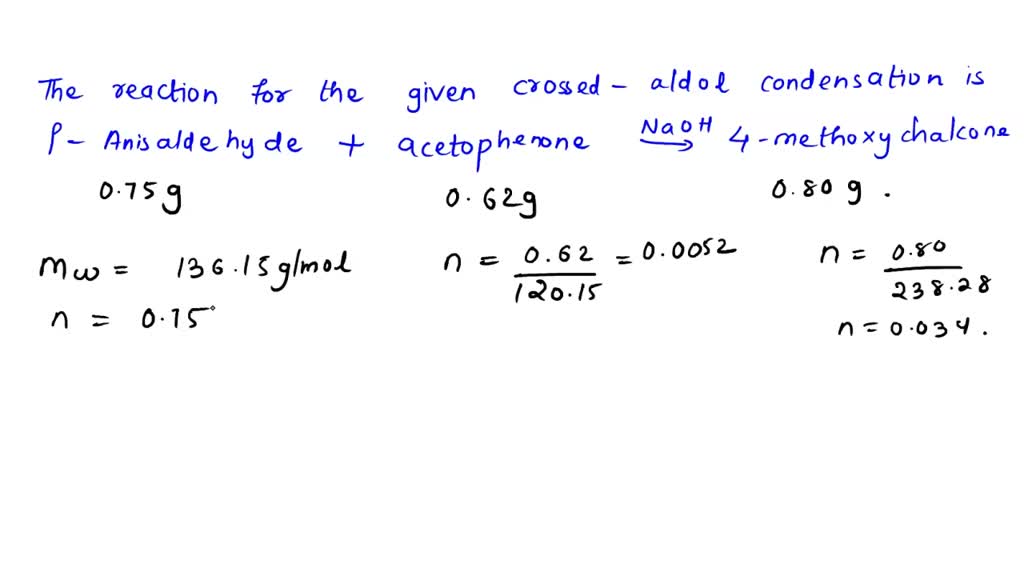 The reaction for the given crossed - aldol condensation is
P - Anisaldehyde + acetophenone NaOH → 4-methoxy chalcone
0.75g 0.62g 0.80 g .
Mw = 136.15 g/mol n = 0.62 / 120.15 = 0.0052 n = 0.80 / 238.28
n = 0.75 n = 0.034 .